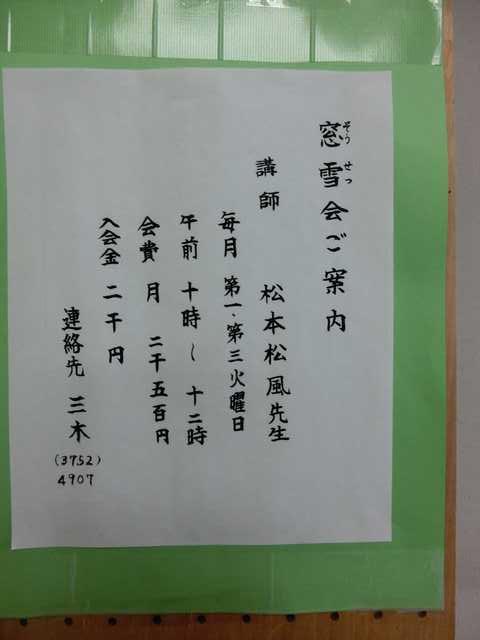 窓雪会ご案内
そう せつ
講師 松本松風先生
毎月 第一、第三火曜日
午前 十時〜十二時
会費 月 二千五百円
入会金 二千円
連絡先 三木
(3752)
4907